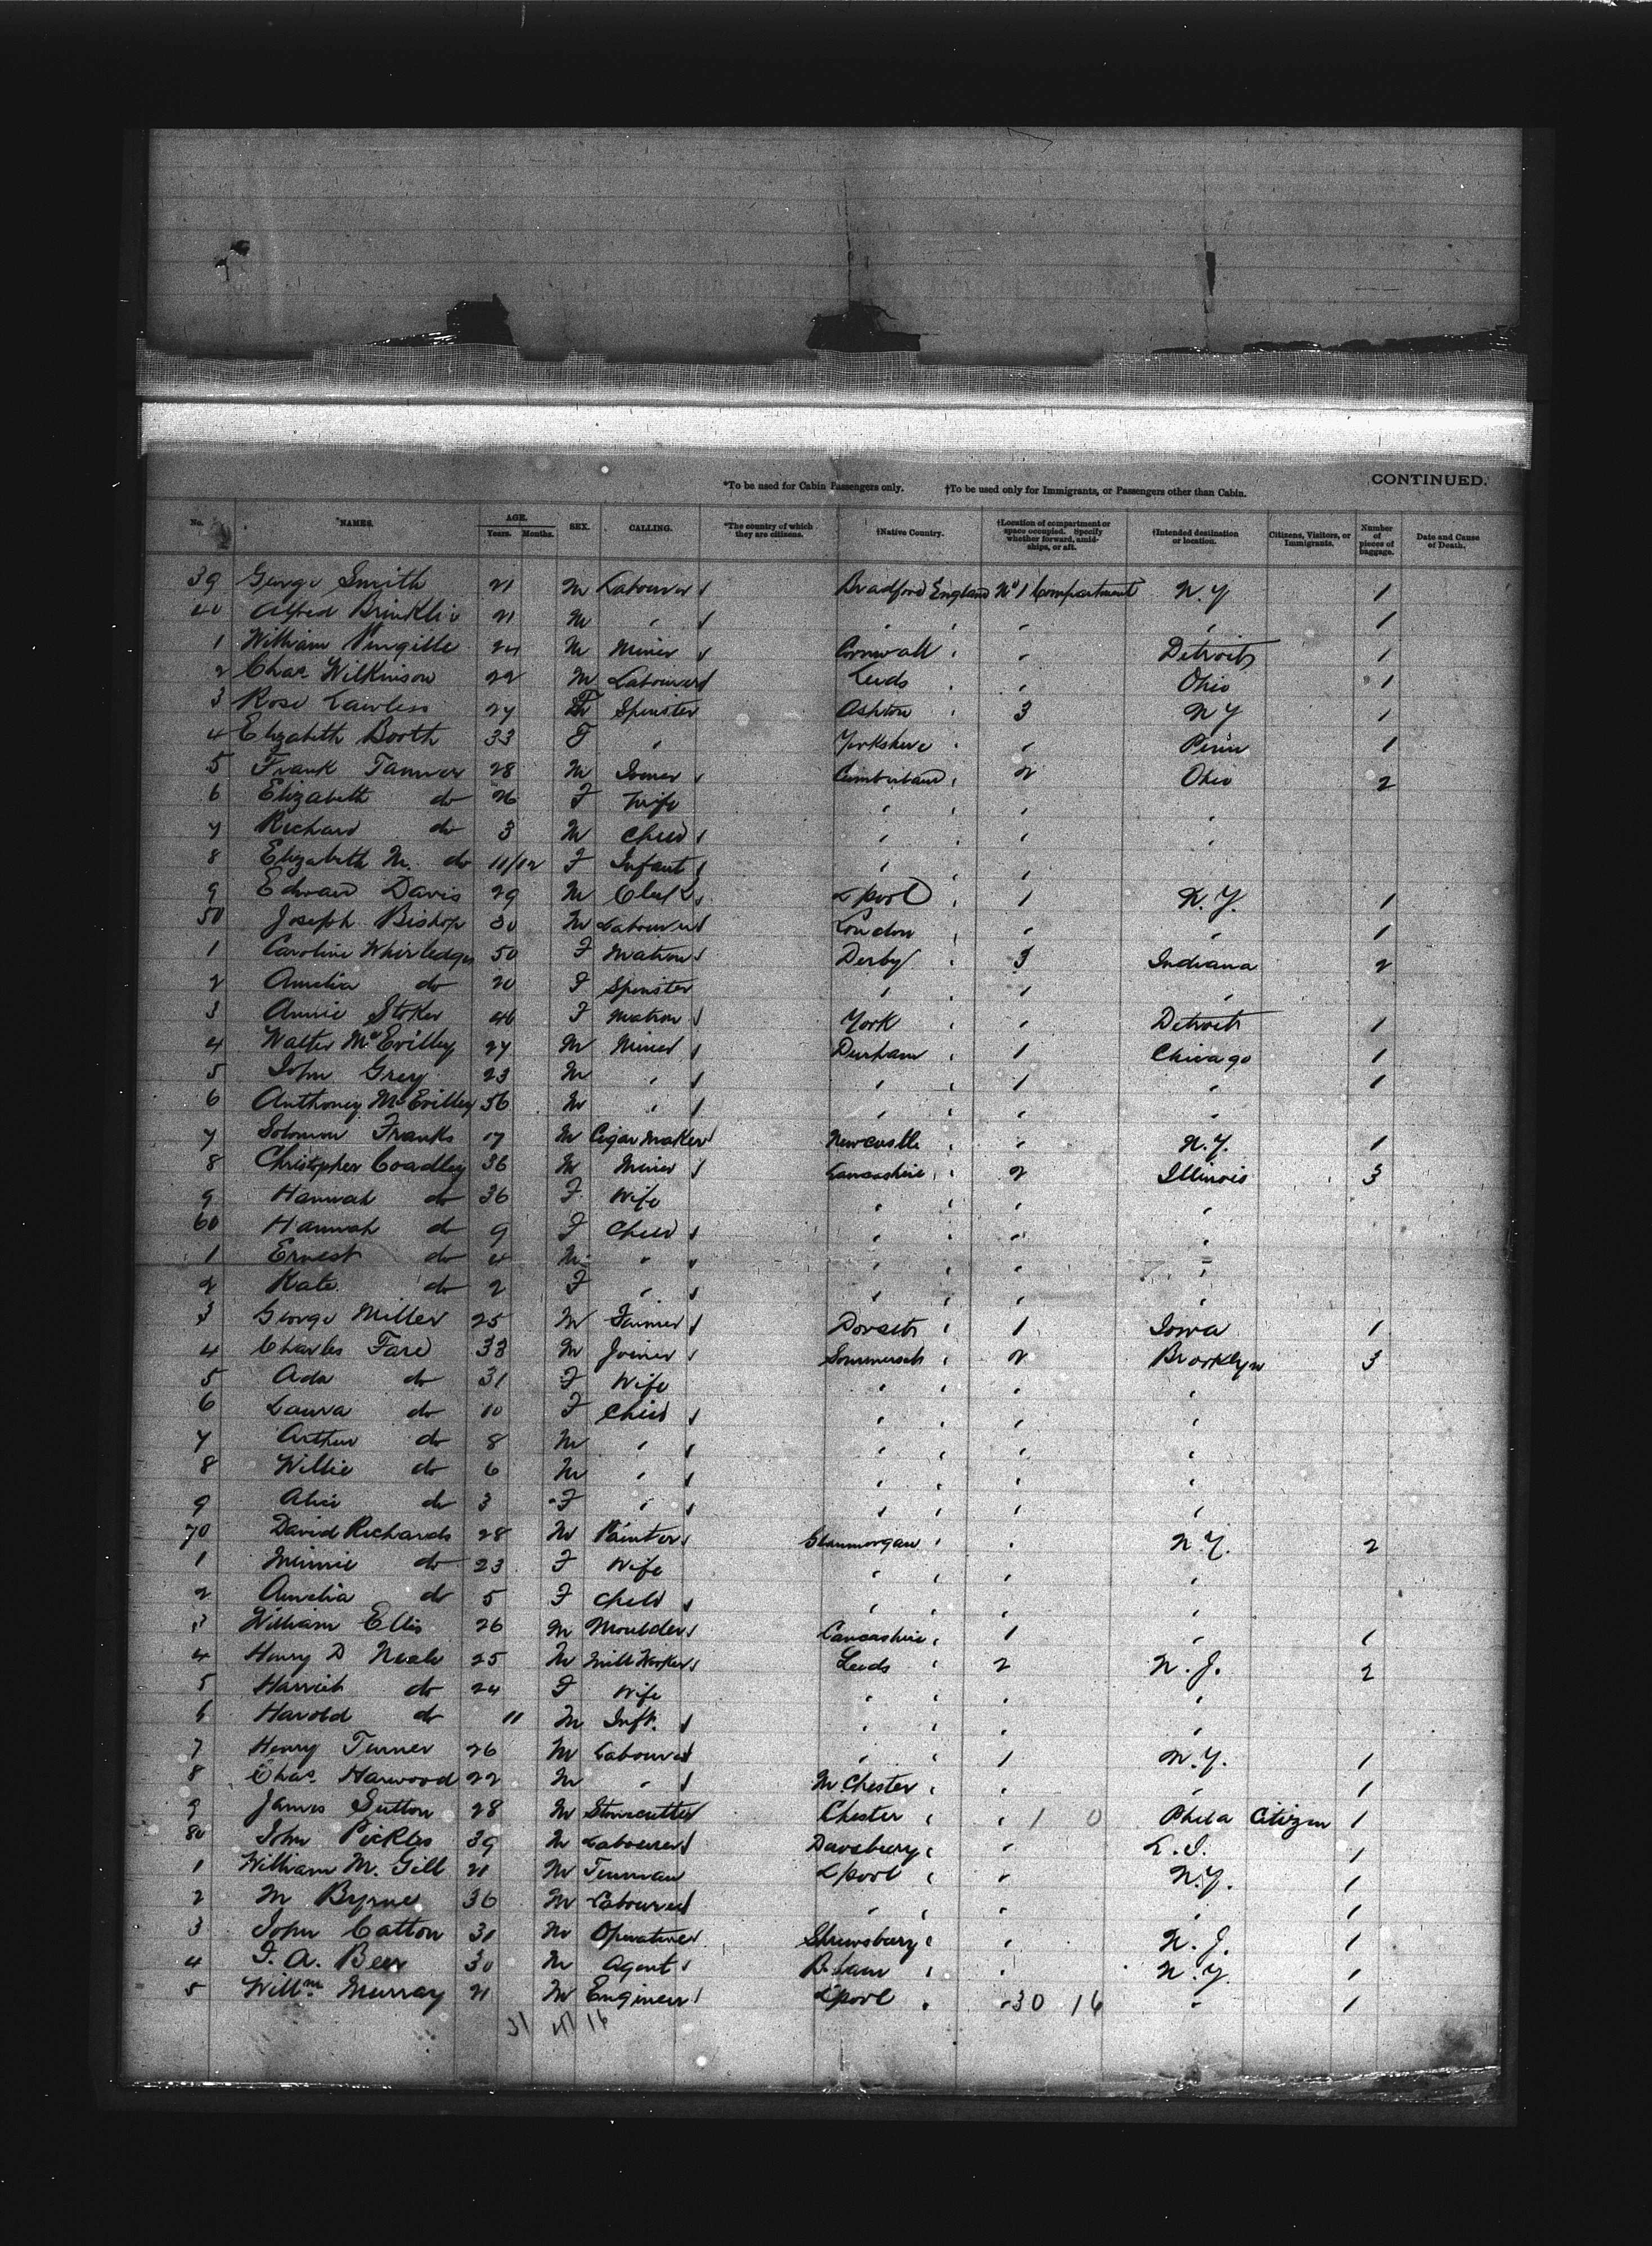 CONTINUED.
*To be used for Cabin Passengers only. †To be used only for Immigrants, or Passengers other than Cabin.
No. NAMES. AGE. Years. Months. SEX. CALLING. *The country of which they are citizens. †Native Country. †Location of compartment or space occupied. Specify whether forward, amidships, or aft. †Intended destination or location. Citizens, Visitors, or Immigrants. Number of pieces of baggage. Date and Cause of Death.
39 George Smith 21 M Labourer Bradford England No 1 Compartment N.Y 1
40 Alfred 21 M " " " " " 1
1 William 24 M Miner Cornwall " " Detroit 1
2 Chas. Wilkinson 22 M Labourer Leeds " " Ohio 1
3 Rose Lawless 27 F Spinster Ashton " 3 N Y 1
4 Elizabeth Booth 33 F " Yorkshire " " Penn 1
5 Frank Tanner 28 M Joiner Cumberland " 2 Ohio 2
6 Elizabeth do 26 F Wife " " " "
7 Richard do 3 M Child " " " "
8 Elizabeth M. do 11/12 F Infant " " "
9 Edward Davis 29 M Clerk L'pool " 1 N.Y. 1
50 Joseph Bishop 30 M Labourer London " " " 1
1 Caroline Whirledge 50 F Matron Derby " 3 Indiana 2
2 Amelia do 20 F Spinster " " " "
3 Annie Stoker 46 F Matron York " " Detroit 1
4 Walter McEvilley 27 M Miner Durham " 1 Chicago 1
5 John Grey 23 M " " " 1 " 1
6 Anthoney McEvilley 56 M " " " " "
7 Solomon Franks 17 M Cigar Maker Newcastle " " N.Y. 1
8 Christopher Coadley 36 M Miner Lancashire " 2 Illinois 3
9 Hannah do 36 F Wife " " " "
60 Hannah do 9 F Child " " " "
1 Ernest do 4 M " " " " "
2 Kate do 2 F " " " " "
3 George Miller 25 M Farmer Dorset " 1 Iowa 1
4 Charles Fare 33 M Joiner Sommerset " 2 Brooklyn 3
5 Ada do 31 F Wife " " " "
6 Laura do 10 F Child " " " "
7 Arthur do 8 M " " " " "
8 Willie do 6 M " " " " "
9 Alice do 3 F " " " " "
70 David Richards 28 M Painter Glanmorgan " " N.Y. 2
1 Minnie do 23 F Wife " " " "
2 Amelia do 5 F Child " " " "
3 William Ellis 26 M Moulder Lancashire " 1 " 1
4 Henry D Neale 25 M Mill Worker Leeds " 2 N.J. 2
5 Harriet do 24 F Wife " " " "
6 Harold do 11 M Inft. " " " "
7 Henry Turner 26 M Labourer " " 1 N.Y. 1
8 Chas. Harwood 22 M " M.Chester " " " 1
9 James Sutton 28 M Stonecutter Chester " " 1 0 Phila Citizen 1
80 John Pickles 39 M Labourer Dewsbury " " L.I. 1
1 William M. Gill 21 M Tinman L'pool " " N.Y. 1
2 M Byrne 36 M Labourer " " " " 1
3 John Catton 31 M Operative Shrewsbury " " N.J. 1
4 T. A. Beer 30 M Agent B.ham " " N.Y. 1
5 Willm Murray 21 M Engineer L'pool " " 30 16 " 1
31 16